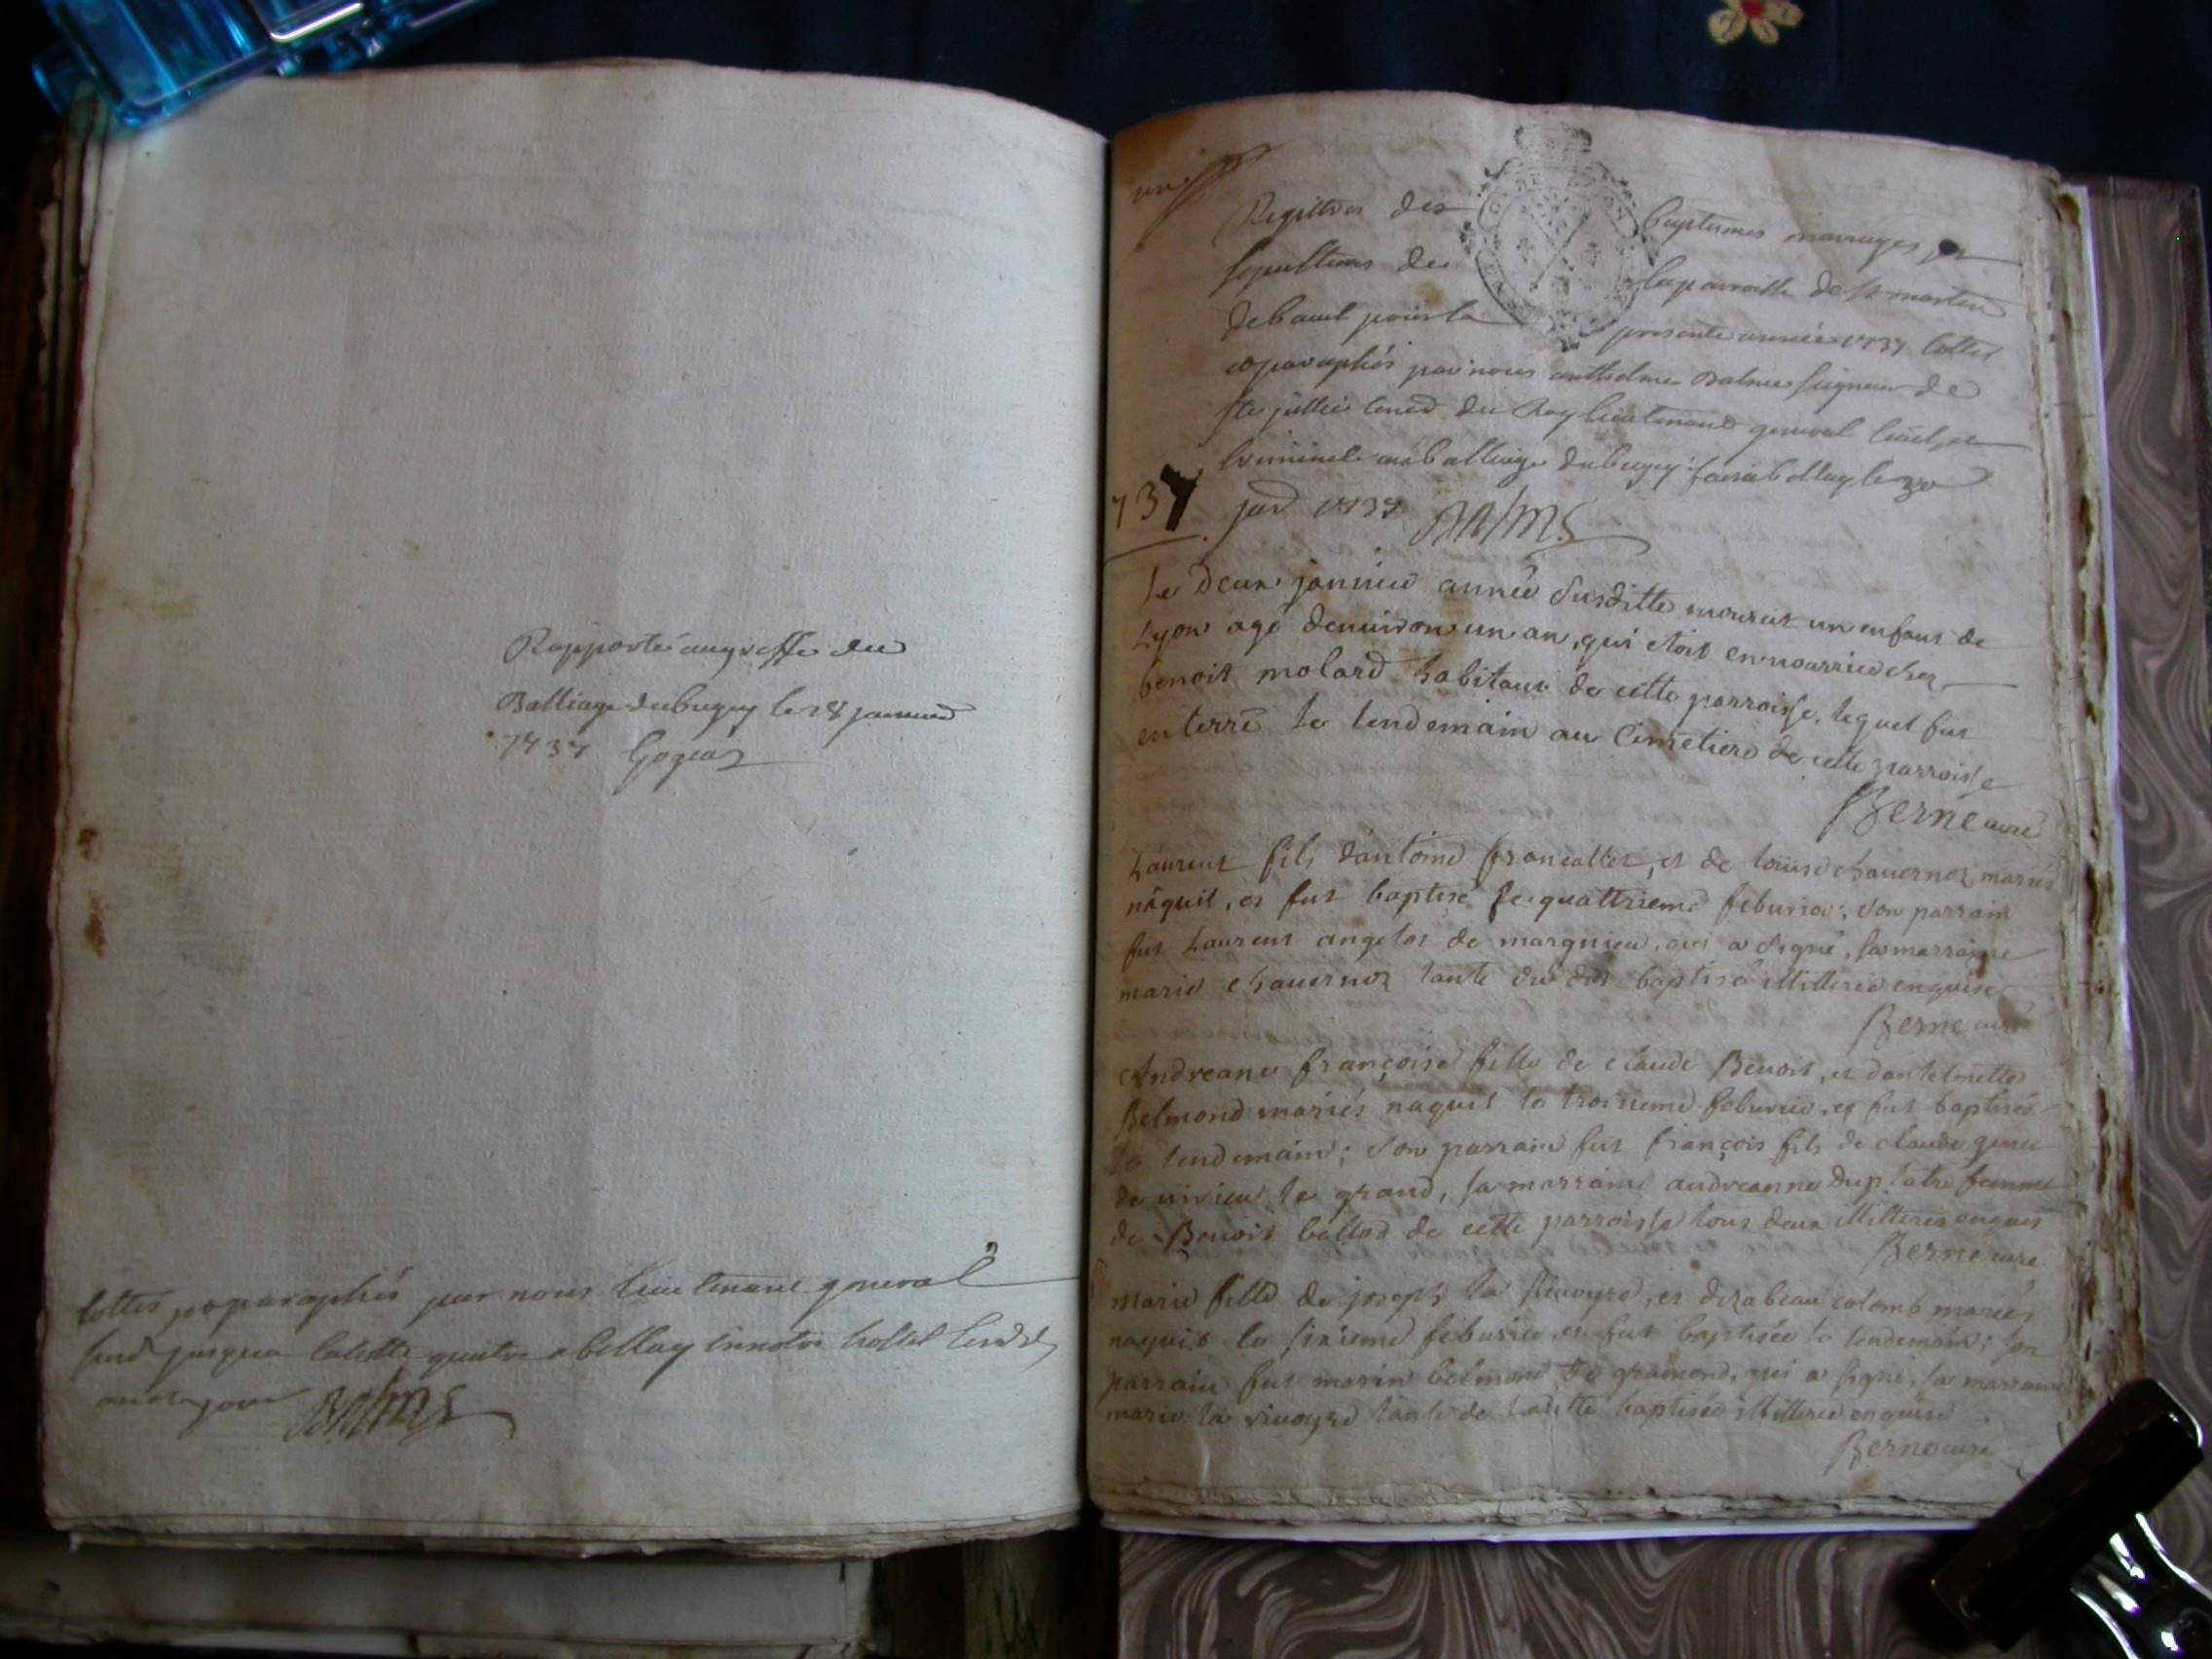 Rapporté au greffe du
Balliage du bugey le 28 janvier
1737
cottés et paraphés par nous lieutenant general
jusqua
et jour Balme
Registres des baptemes mariages et
sepultures de la parroisse de st martin
debaul pour la presente année 1737 cottés
et paraphés par nous anthelme Balme seigneur de
ste jullie du Roy lieutenant general civil et
criminel au balliage du bugey fait a belley le
jer 1737 Balme
737
Le deux janvier année susditte mourut un enfant de
Lyon agé denuiron un an, qui etoit en nourrice chez
benoit molard habitant de cette parroisse, lequel fut
enterré le lendemain au Cimetiere de cette parroisse
Berne curé
Laurent fils dantoine francallet, et de louise chauernoz mariés
nâquit, et fut baptisé le quattrieme feburier; son parrain
fut Laurent angelot de margnieu, qui a signé, sa marraine
marie chauernoz tante du dit baptisé illitterée enquise
Berne curé
Andreane françoise fille de claude Benoit, et dantelmette
Belmond mariés naquit le troisieme feburier, et fut baptisée
le lendemain; son parrain fut françois fils de claude
de uirieu le grand, sa marraine andreanne duplatre femme
de Benoit bellod de cette parroisse tous deux illitterés enquis
Berne curé
marie fille de joseph la et dizabeau colomb mariés
naquit le sixieme feburier, et fut baptisée le lendemain; son
parrain fut marin belmond de gramond, qui a signé, sa marraine
marie la tante de laditte baptisée illitterée enquise
Berne curé